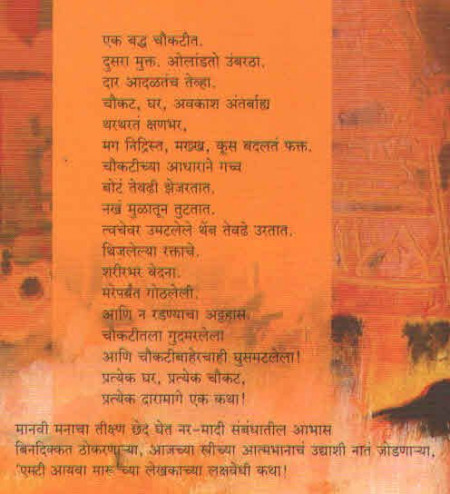 एक बद्ध चौकटीत.
दुसरा मुक्त. ओलांडतो उंबरठा.
दार आदळतंच तेव्हा.
चौकट, घर, अवकाश अंतर्बाह्य
थरथरतं क्षणभर,
मग निद्रिस्त, मख्ख, कूस बदलतं फक्त.
चौकटीच्या आधाराने गच्च
बोटं तेवढी झेंजरतात.
नखं मुळातून तुटतात.
त्वचेवर उमटलेले थेंब तेवढे उरतात.
थिजलेल्या रक्ताचे.
शरीरभर वेदना.
मरेपर्यंत गोठलेली.
आणि न रडण्याचा अट्टहास.
चौकटीतला गुदमरलेला
आणि चौकटीबाहेरचाही घुसमटलेला!
प्रत्येक घर, प्रत्येक चौकट,
प्रत्येक दारामागे एक कथा!
मानवी मनाचा तीक्ष्ण छेद घेत नर-मादी संबंधातील आभास
बिनदिक्कत ठोकरणाऱ्या, आजच्या स्त्रीच्या आत्मभानाचं उद्याशी नातं जोडणाऱ्या,
'एमटी आयवा मारू'च्या लेखकाच्या लक्षवेधी कथा!